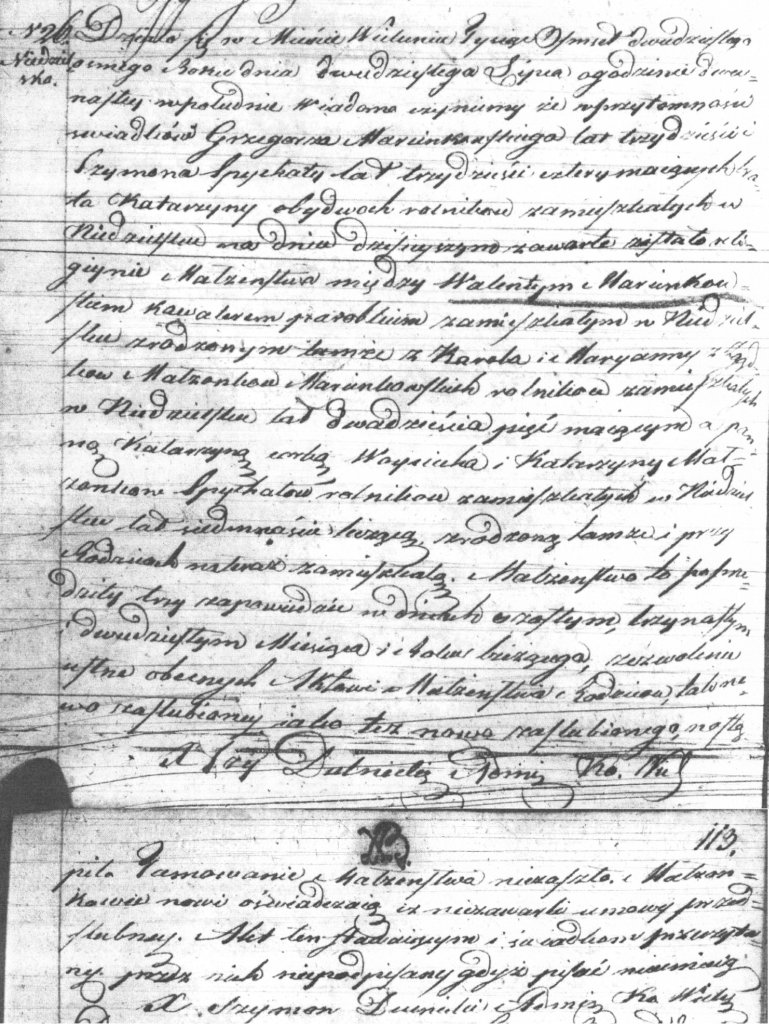 N 26. Działo się w Mieście Wieluniu Tysiąc Osmset dwudziestego
Niedziel osmego Roku dnia dwudziestego Lipca o godzinie dwu-
sko. nastey wpołudnie Wiadomo czyniemy że wprzytomności
swiadków Grzegorza Marcinkowskiego lat trzydzieści i
Szymona Spychały lat trzydzieści cztery maiących bra-
ta Katarzyny obydwoch rolników zamieszkałych w
Niedzielsku na dniu dzisieyszym zawarte zostało reli-
giynie Małżenstwo między Walentym Marcinkow-
skiem Kawalerem parobkiem zamieszkałym w Niedziel-
sku zrodzonym tamże z Karola i Maryanny z
ków Małżonków Marcinkowskich rolników zamieszkałych
w Niedzielsku lat dwadzieścia pięć maiącym a pan-
ną Katarzyną corką Woyciecha i Katarzyny Mał-
żonków Spychałów rolników zamieszkałych w Niedziel
sku lat siedmnaście liczącą, zrodzoną tamże i przy
Rodzicach nateraz zamieszkałą. Małżenstwo to poprze-
dziły trzy zapowiedzie w dniach szostym, trzynastym
i dwudziestym Miesiąca i Roku bieżącego, zezwolenie
ustne obecnych Aktowi Małżenstwa Rodziców, tak no-
wo zaslubioney iako też nowo zaslubionego nastą
X Szy Dutnicki Komi Ko. Wiel
113.
piło Tamowanie Małżenstwa niezaszło. Małżon-
kowie nowi oświadczaią iż niezawarli umowy przed-
slubney. Akt ten stawaiącym i swiadkom przeczyta-
ny. przez nich niepodpisany gdyż pisać nieumieią
X. Szymon Dutnicki Komi Ko Wiel